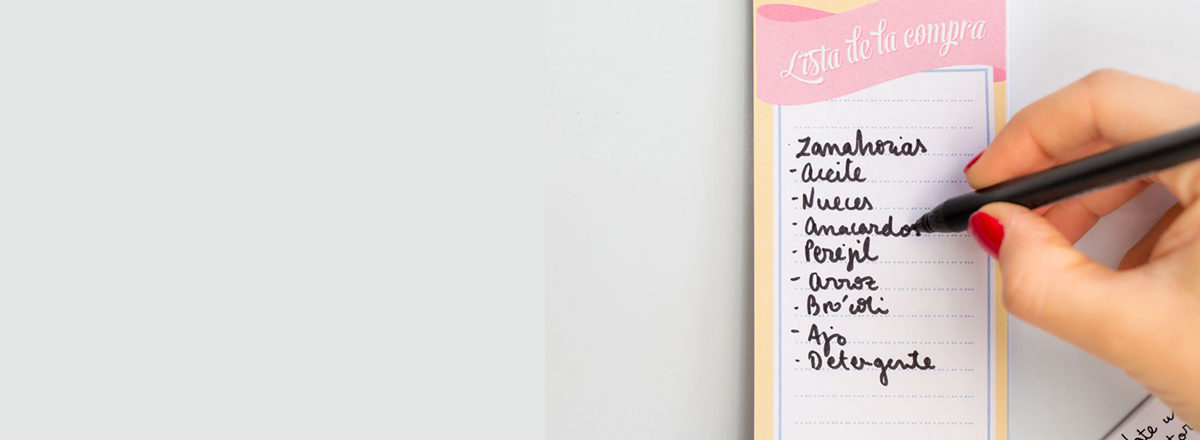 Lista de la compra
· Zanahorias
- Aceite
- Nueces
- Anacardos
- Perejil
- Arroz
- Brócoli
- Ajo
- Detergente